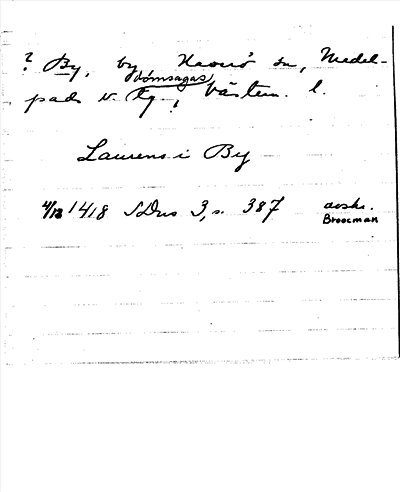 ? By, by Haverö sn, Medel-
pads v. domsagas tg., Västern. l.
Laurens i By
4/13 1418 SDns 3, s. 387 avskr.
Broocman